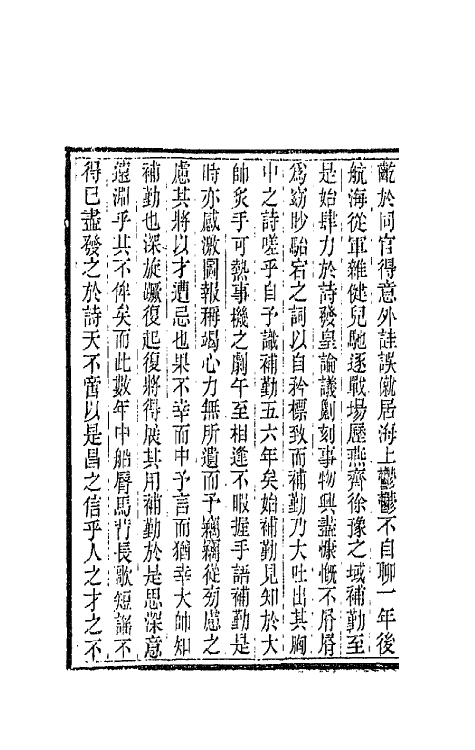 齕於同官得意外詿誤僦居海上鬱鬱不自聊一年後
航海從軍雜健兒馳逐戰場歷燕齊徐豫之域補勤至
是始肆力於詩發皇論議劖刻事物興盡慷慨不屑屑
爲窈眇駘宕之詞以自矜標致而補勤乃大吐出其胸
中之詩嗟乎自予識補勤五六年矣始補勤見知於大
帥炙手可熱事機之劇午至相逢不暇握手語補勤是
時亦感激圖報稱竭心力無所遺而予竊竊從旁慮之
慮其將以才遭忌也果不幸而中予言而猶幸大帥知
補勤也深旋蹶復起復將得展其用補勤於是思深意
遠淵乎其不侔矣而此數年中船脣馬背長歌短謠不
得已盡發之於詩天不啻以是昌之信乎人之才之不